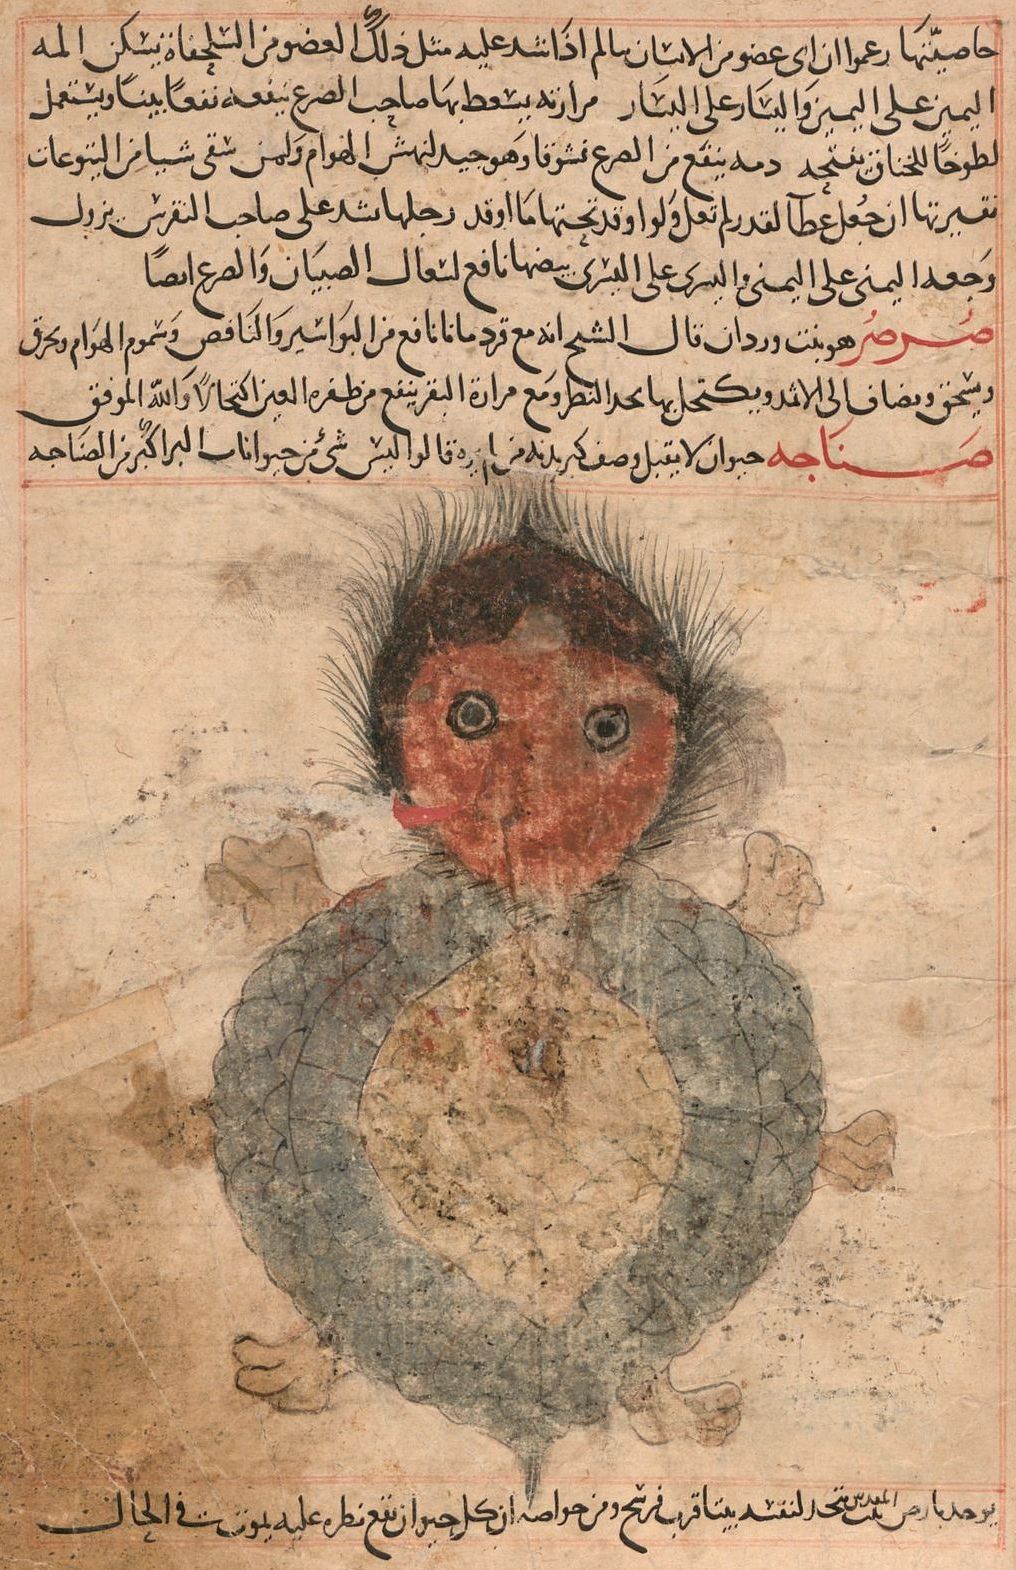 خاصيتها زعموا ان اى عضو من الانسان سالم اذا شد عليه مثل ذلك العضو من السلحفاة يسكن المه
اليمين على اليمين واليسار على اليسار مرارته يسعط بها صاحب الصرع ينفعه نفعا بينا ويستعمل
لطوخا للخناق دمه ينفع من الصرع نشوقا وهو جيد لنهش الهوام ولمن سقى شيا من اليتوعات
ان جعل غطا لقدر لم تغل ولو اوقد تحتها ما اوقد رجلها شد على صاحب النقرس يزول
وجعه اليمنى على اليمنى واليسرى على اليسرى بيضها نافع لسعال الصبيان والصرع ايضا
صرصر هو بنت وردان قال الشيخ انه مع قردمانا نافع من البواسير والنافض وسموم الهوام ويحرق
ويسحق ويضاف الى الاثمد ويكتحل بها يحد النظر ومع مرارة البقر ينفع من ظفره العين اكتحالا والله الموفق
صناجه حيوان لا يقبل وصف كبر بدنه من لم يره قالوا ليس شئ من حيوانات البر اكبر من الصناجه
يوجد بارض يتخذ لنفسه بيتا قريب فرسخ ومن خواصه ان كل حيوان يقع نظره عليه يموت فى الحال